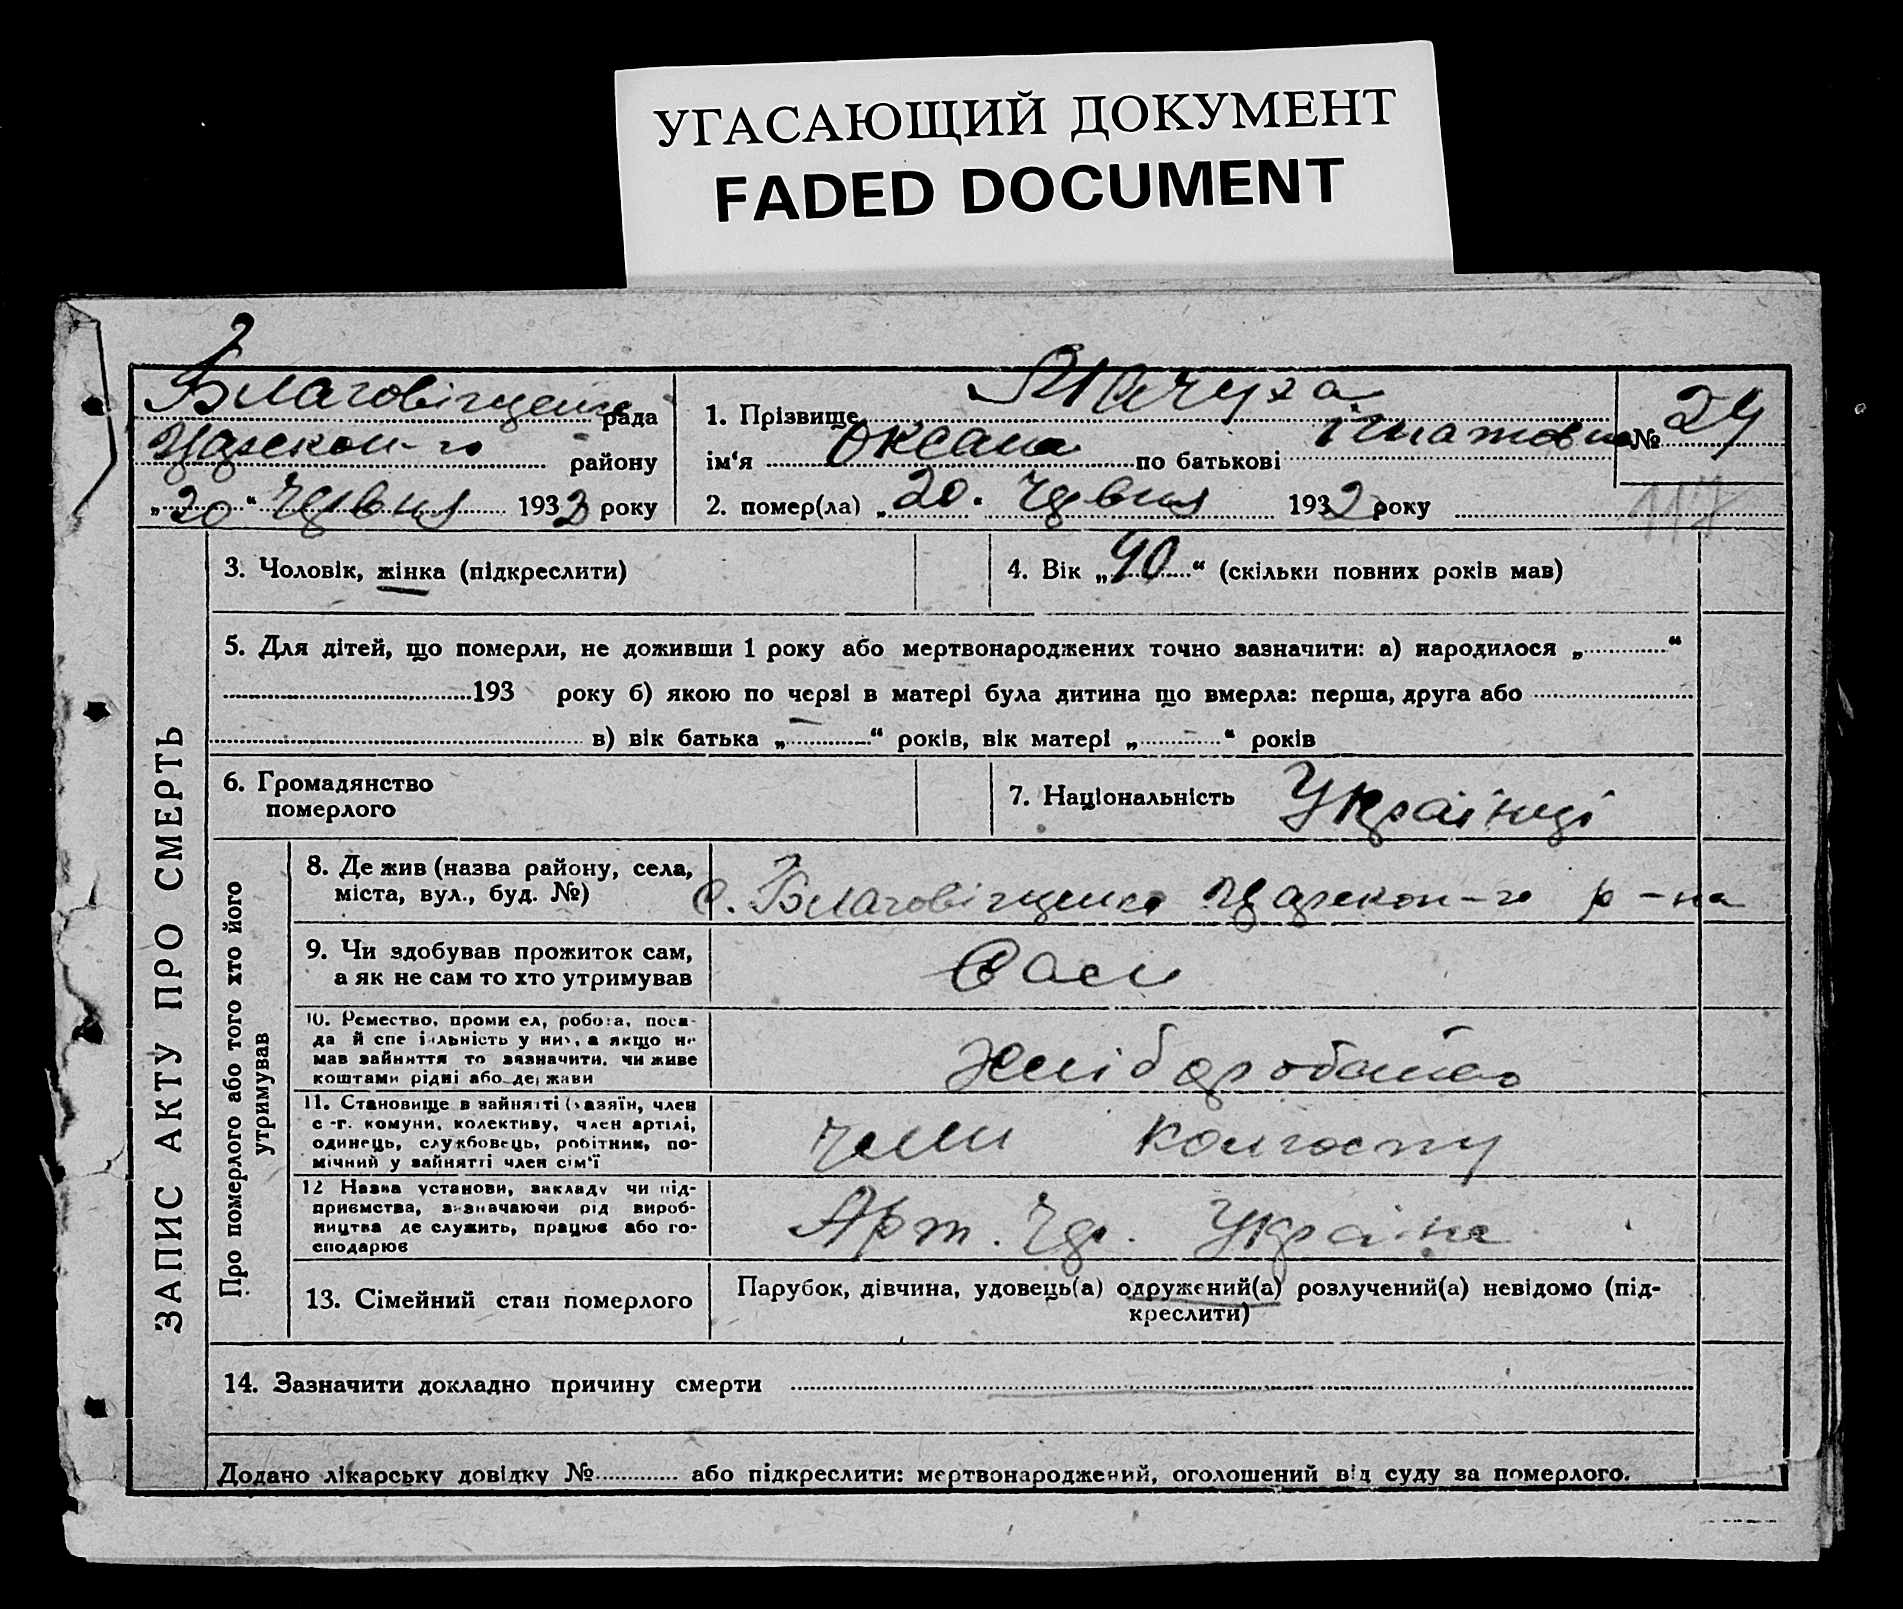 УГАСАЮЩИЙ ДОКУМЕНТ
FADED DOCUMENT
Благовіщенс рада
Царекон-го району
„20“ червня 1932 року
1. Прізвище
ім‘я Оксана по батькові Ігнатовна
2. помер(ла) „20. червня 1932 року
№ 24
117
ЗАПИС АКТУ ПРО СМЕРТЬ
3. Чоловік, жінка (підкреслити)
4. Вік „40“ (скільки повних років мав)
5. Для дітей, що померли, не доживши 1 року або мертвонароджених точно зазначити: а) народилося „ “
193 року б) якою по черзі в матері була дитина що вмерла: перша, друга або
в) вік батька „—“ років, вік матері „—“ років
6. Громадянство
померлого
7. Національність Українці
Про померлого або того хто його
утримував
8. Де жив (назва району, села,
міста, вул., буд. №)
с. Благовіщенка Царекон-го р-на
9. Чи здобував прожиток сам,
а як не сам то хто утримував
Сам
10. Ремество, промисел, робота, поса-
да й спеціальність у них, а якщо не
мав зайняття то зазначити, чи живе
коштами рідні або держави
Хлібороботво
11. Становище в зайнятті (хазяїн, член
с.-г. комуни, колективу, член артілі,
одинець, службовець, робітник, по-
мічний у зайнятті член сім‘ї
член колгоспу
12 Назва установи, закладу чи під-
приємства, визначаючи рід вироб-
ництва де служить, працює або го-
сподарює
Арт. Чр. Україна
13. Сімейний стан померлого
Парубок, дівчина, удовець(а) одружений(а) розлучений(а) невідомо (під-
креслити)
14. Зазначити докладно причину смерти
Додано лікарську довідку № або підкреслити: мертвонароджений, оголошений від суду за померлого.